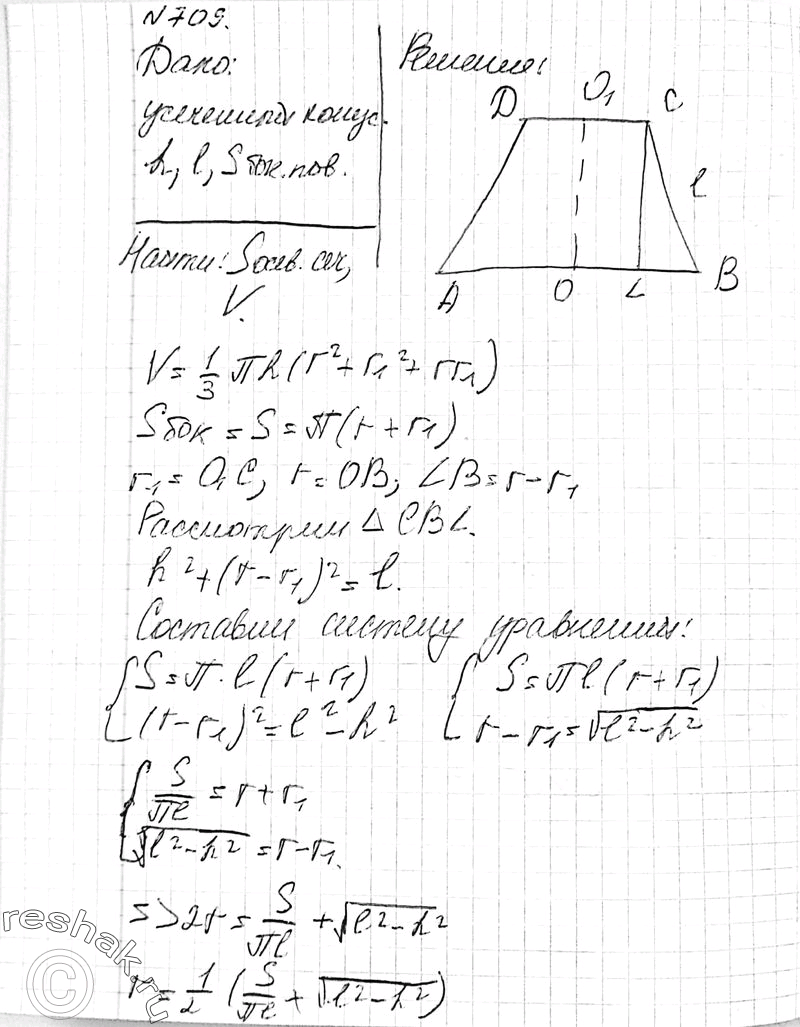 №709.
Дано:
усеченный конус.
h, l, Sбок.пов.
Найти: Sосев. сеч,
V.
Решение:
D O₁ C
l
A O L B
V = 1/3 πh(r² + r₁² + rr₁)
Sбок = S = π(r + r₁)
r₁ = O₁C, r = OB; LB = r - r₁
Рассмотрим Δ CBL.
h² + (r - r₁)² = l.
Составим систему уравнений:
{ S = π·l(r + r₁) { S = πl(r + r₁)
(r - r₁)² = l² - h² r - r₁ = √(l² - h²)
{ S/πl = r + r₁
√(l² - h²) = r - r₁.
=> 2r = S/πl + √(l² - h²)
r = 1/2 (S/πl + √(l² - h²))
reshak.ru
©